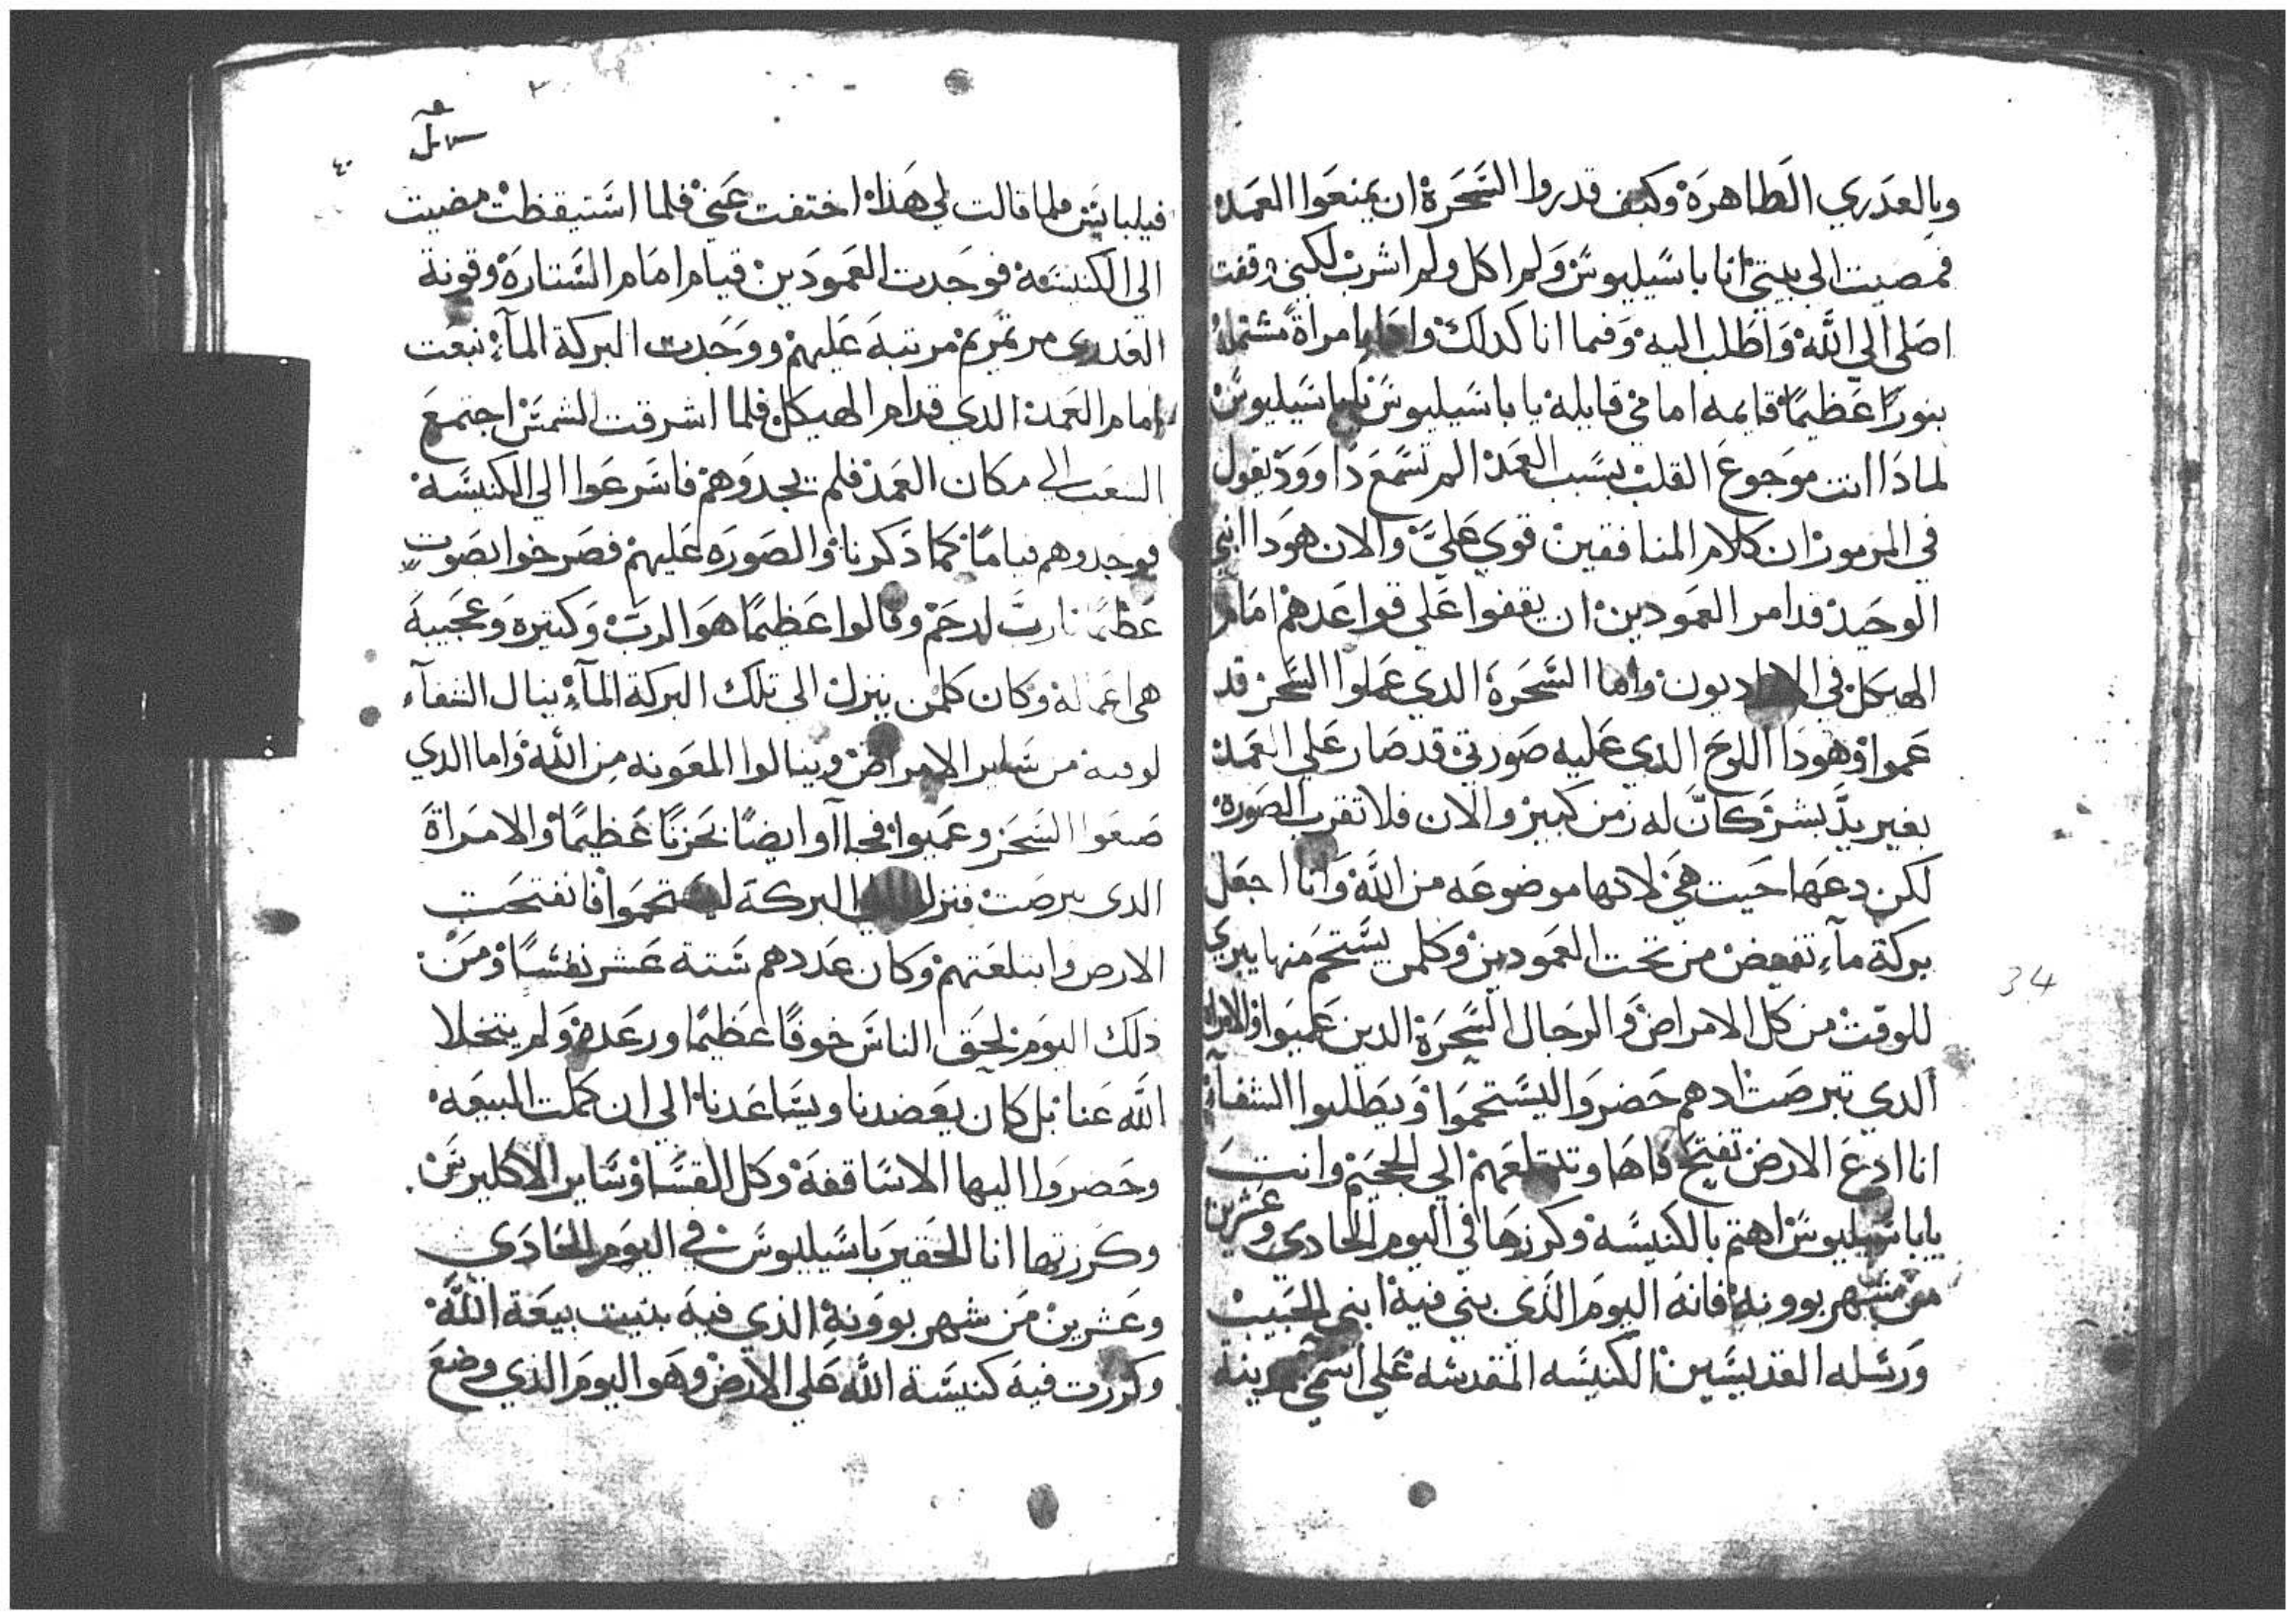 وبالعدري الطاهرة وكيف قدروا السحرة ان يمنعوا العمد
فمضيت الي بيتي انا باسيليوس ولم اكل ولم اشرب لكني وقفت
اصلي الي الله واطلب اليه وفيما انا كدلك وادا بامراة مشتملة
بنورا عظيما قايمه امامي قايله يا باسيليوس يا باسيليوس
لمادا انت موجوع القلب بسبب العمد الم تسمع داوود يقول
في المزمور ان كلام المنافقين قوي علي والان هودا ابني
الوحيد قد امر العمودين ان يقفوا علي قواعدهم امام
الهيكل في واما السحرة الدي عملوا السحر قد
عموا وهودا اللوح الدي عليه صورتي قد صار علي العمد
بغير يد بشر كان له زمن كبير والان فلا تقرب الصورة
لكن دعها حيت هي لانها موضوعه من الله وانا اجعل
بركة مآء تفيض من تحت العمودين وكلمن يستحم منها يبري
للوقت من كل الامراض والرجال السحرة الدين عميوا والامراة
الدي تبرصت ادهم حضروا ليستحموا ويطلبوا الشفآء
انا ادع الارض تفتح فاها وتبتلعهم الي الجحيم وانت
يا باسيليوس اهتم بالكنيسة وكرزها في اليوم الحادي وعشرين
من شهر بوونة فانه اليوم الذي بني فيه ابني الحبيب
ورسله القديسين الكنيسه المقدسه علي اسمي بمدينة
34
٤٠
فيلبايس فلما قالت لي هذا اختفت عني فلما استيقظت مضيت
الي الكنيسة فوجدت العمودين قيام امام الستارة وقونة
العدري مرتمريم مرتبة عليهم ووجدت البركة المآء نبعت
امام العمد الدي قدام الهيكل فلما اشرقت الشمس اجتمع
الشعب الي مكان العمد فلم يجدوهم فاسرعوا الي الكنيسة
فوجدوهم قياما كما ذكرنا والصورة عليهم فصرخوا بصوت
عظيما يارب ارحم وقالوا عظيما هو الرب وكتيرة وعجيبة
هي اعماله وكان كلمن ينزل الي تلك البركة المآء ينال الشفآء
لوقته من ساير الامراض وينالوا المعونه من الله واما الدي
صنعوا السحر وعميوا فجاآوا ايضا بحزنا عظيما والامراة
الدي برصت فنزلوا الي البركة ليستحموا فانفتحت
الارض وابتلعتهم وكان عددهم ستة عشر نفسا ومن
ذلك اليوم لحق الناس خوفا عظيما ورعدة ولم يتخلا
الله عنا بل كان يعضدنا ويساعدنا الي ان كملت البيعه
وحضروا اليها الاساقفة وكل القسا وساير الاكليرس
وكرزتها انا الحقير باسيليوس في اليوم الحادي
وعشرين من شهر بوونة الذي فيه بنيت بيعة الله
وكرزت فيه كنيسة الله علي الارض وهو اليوم الذي وضع